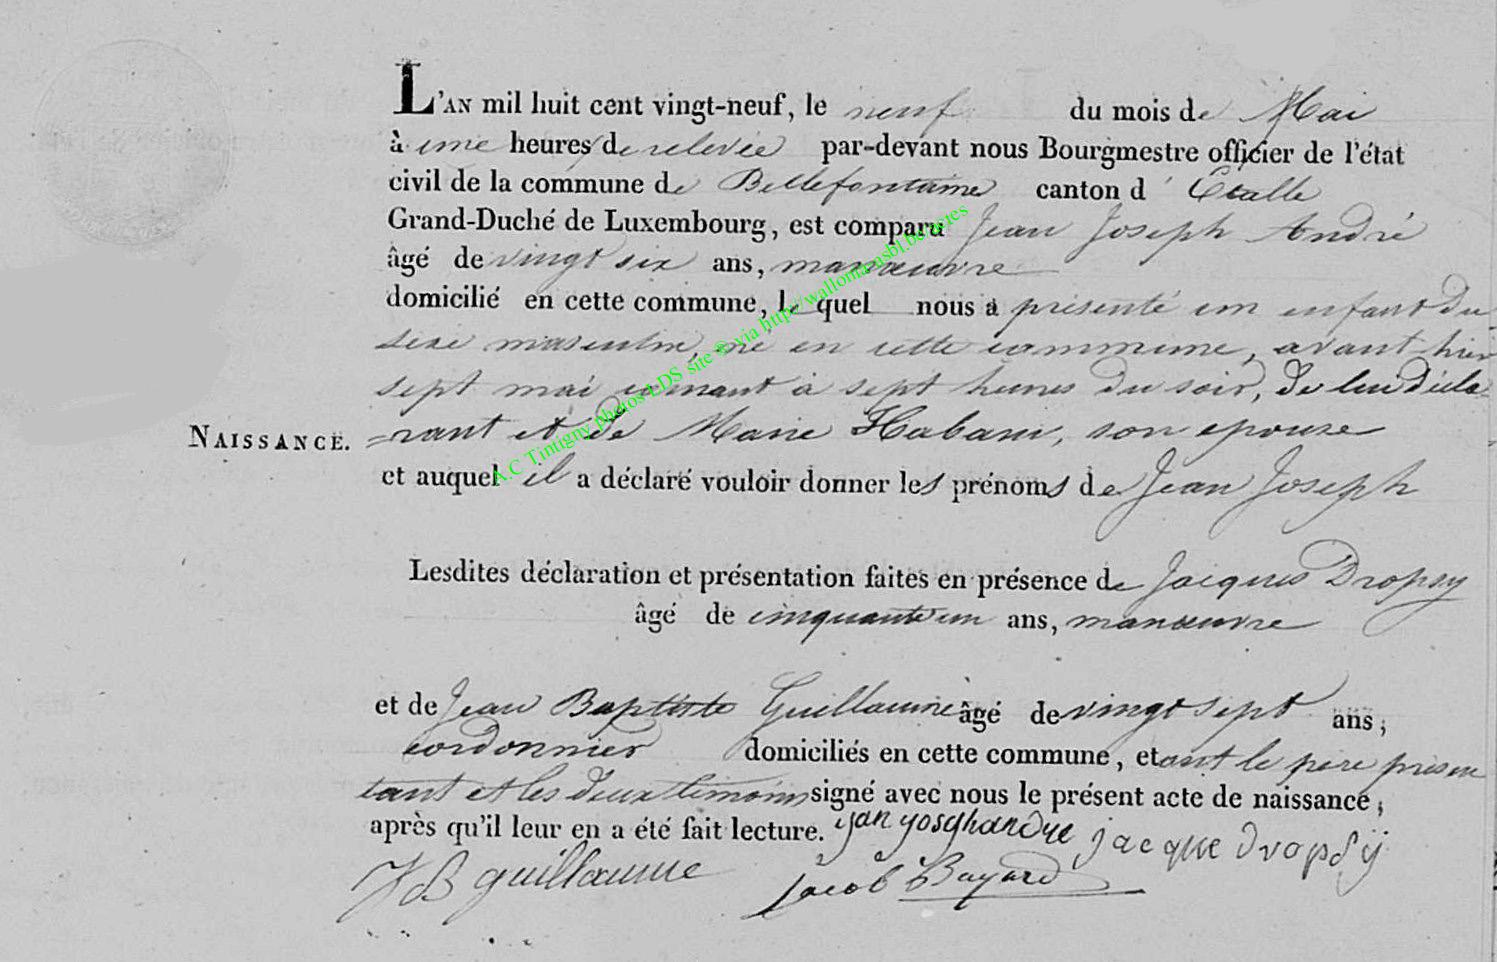 L'AN mil huit cent vingt-neuf, le neuf du mois de Mai
à une heures de relevée par-devant nous Bourgmestre officier de l'état
civil de la commune de Bellefontaine canton d'Etalle
Grand-Duché de Luxembourg, est comparu Jean Joseph André
âgé de vingt six ans, manœuvre
domicilié en cette commune, lequel nous a présenté un enfant du
sexe masculin, né en cette commune, avant hier
sept mai courant à sept heures du soir, de lui décla-
NAISSANCE. =rant et de Marie Habani, son epouse
et auquel il a déclaré vouloir donner les prénoms de Jean Joseph
Lesdites déclaration et présentation faites en présence de Jacques Dropsy
âgé de cinquante un ans, manœuvre
et de Jean Baptiste Guillaume âgé de vingt sept ans,
cordonnier domiciliés en cette commune, et ont le pere presen
tant et les deux témoins signé avec nous le présent acte de naissance,
après qu'il leur en a été fait lecture. jacque dropsÿ
JB guillaume Jacob
A.C Tintigny photos LDS site ® via http://wallonia-asbl.be/actes